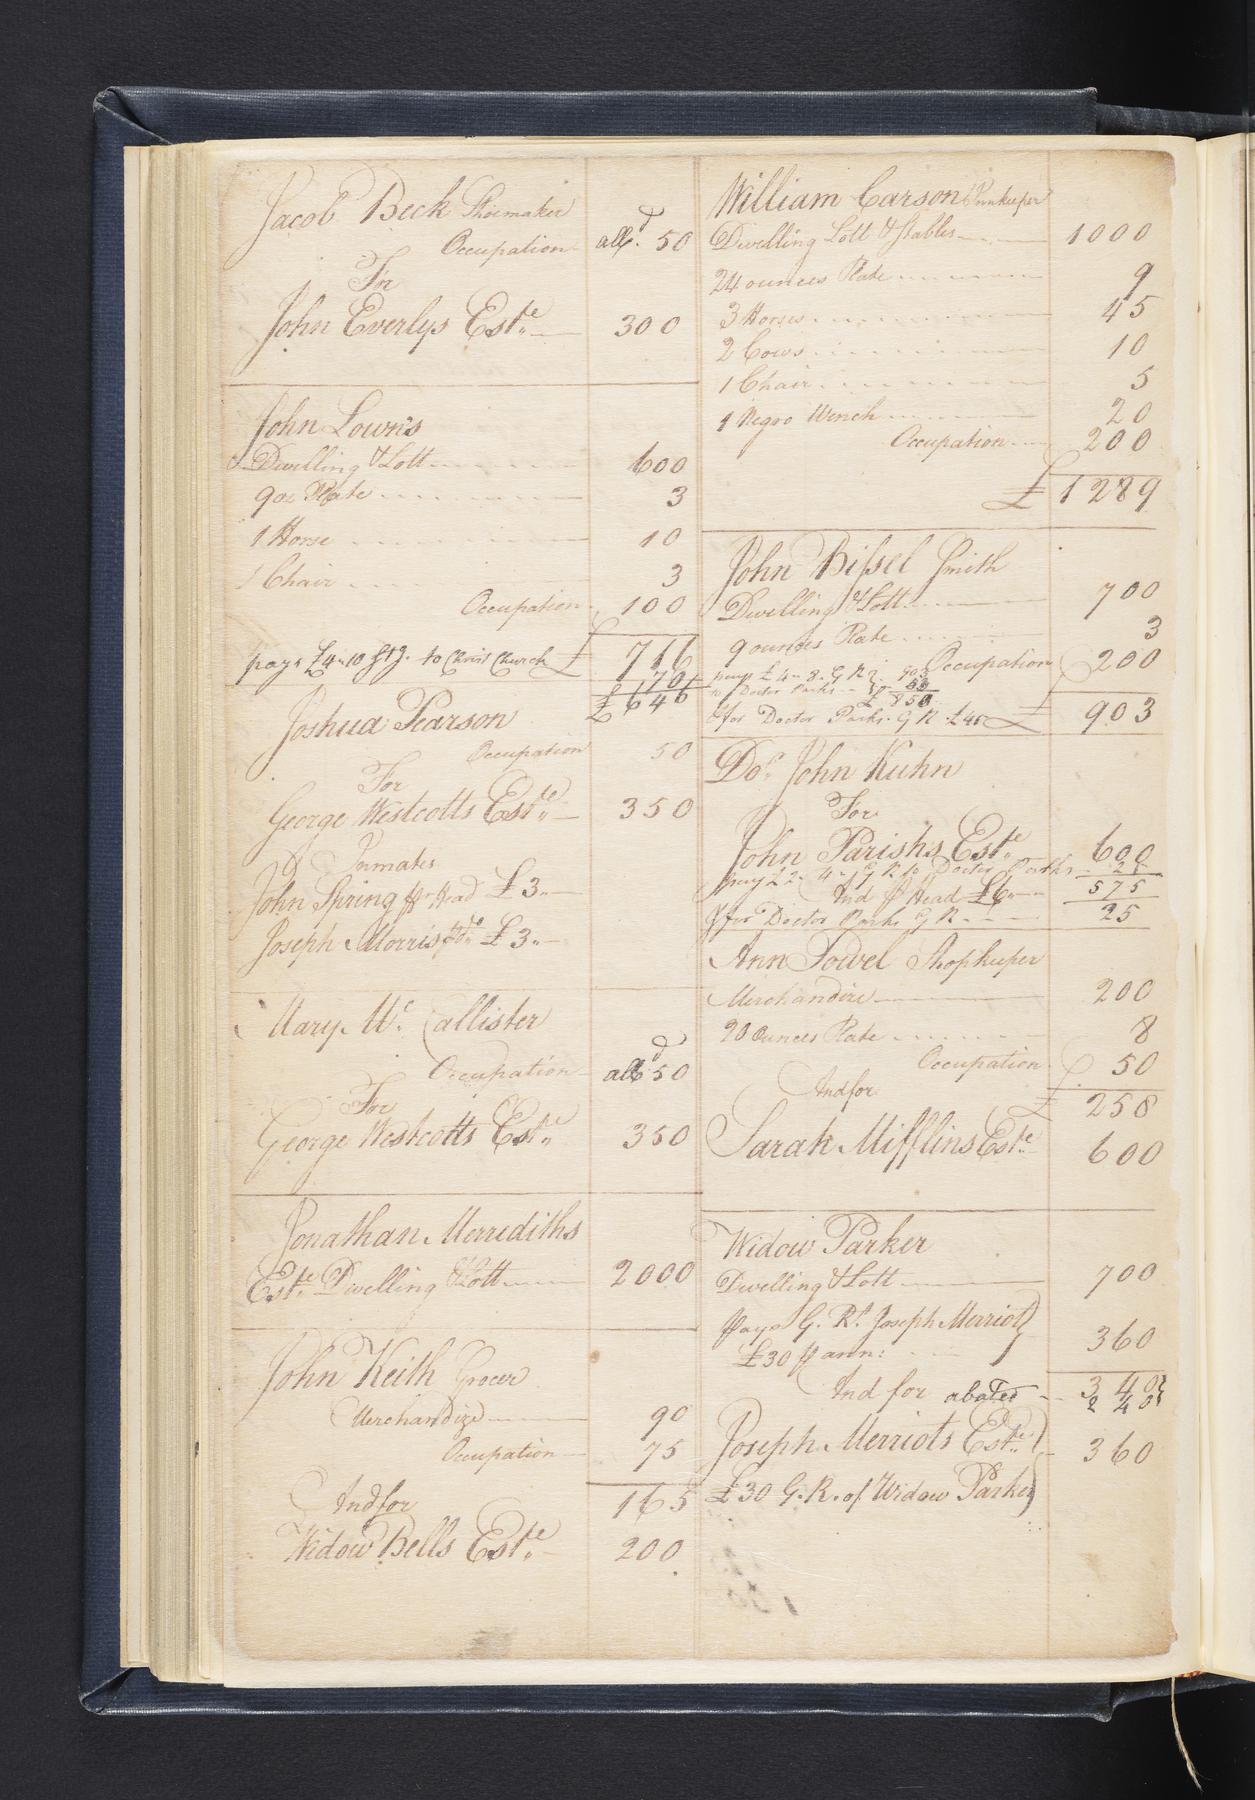 Jacob Beck Shoemaker
Occupation all.d 50
For
John Everlys Est.e 300
John Lowns
Dwelling & Lott 600
9 oz Plate 3
1 Horse 10
1 Chair 3
Occupation 100
pays £4.10 Stg. to Christ Church £ 716
70
£ 646
Joshua Pearson
Occupation 50
For
George Westcotts Est.e 350
Inmates
John Spring ⅌ Head £3
Joseph Morris ⅌ do £3
Mary Mc. Callister
Occupation all.d 50
For
George Westcotts Est.e 350
Jonathan Merrediths
Est.e Dwelling & Lott 2000
John Keith Grocer
Merchandize 90
Occupation 75
And for 165
Widow Bells Est.e 200
William Carson Innkeeper
Dwelling Lott & Stables 1000
24 ounces Plate 9
3 Horses 45
2 Cows 10
1 Chair 5
1 Negro Wench 20
Occupation 200
£ 1289
John Bissel Smith
Dwelling & Lott 700
9 ounces Plate 3
Occupation 200
pays £4.8. G R 903
to Doctor Parks 53
£ 850
& for Doctor Parks. G R £45 £ 903
Do.r John Kuhn
For
John Parishs Est.e 600
pays £2.4. G R to Doctor Parks 25
And ⅌ Head £6 575
& for Doctor Parks G R 25
Ann Powel Shopkeeper
Merchandize 200
20 Ounces Plate 8
Occupation 50
And for £ 258
Sarah Mifflins Est.e 600
Widow Parker
Dwelling & Lott 700
Pays G. R.t Joseph Merriot
£30 ⅌ ann: 360
And for abated 340
240
Joseph Merriots Est.e 360
£30 G. R. of Widow Parker